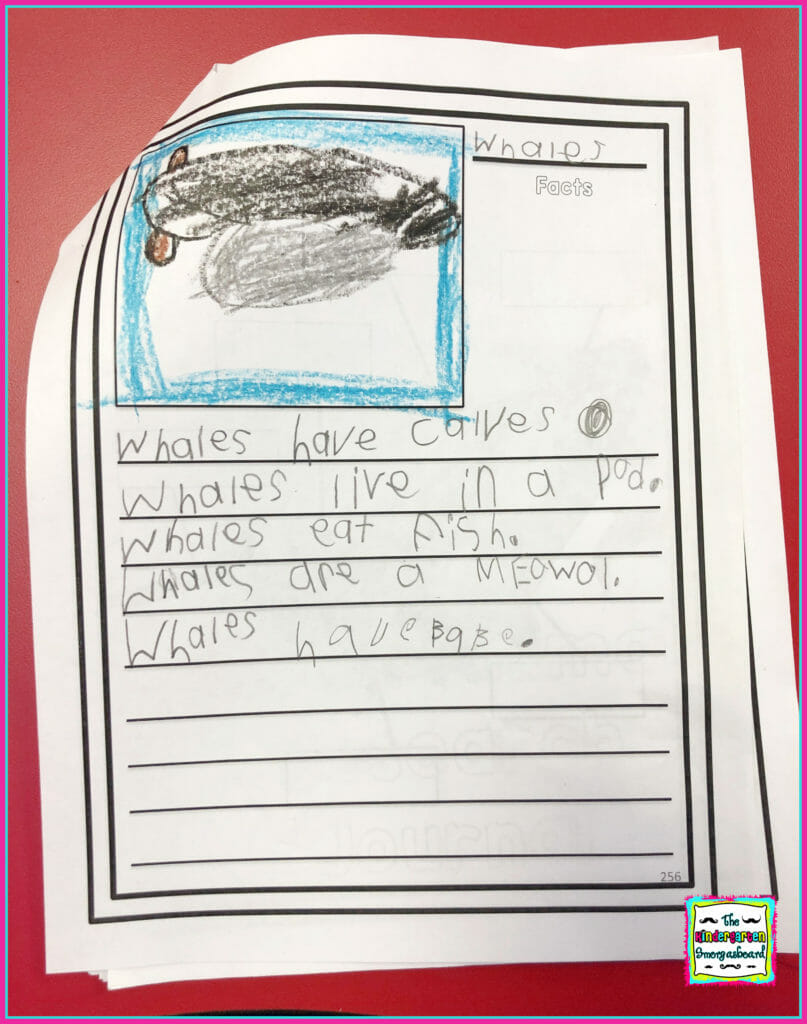 Whales
Facts
Whales have calves
Whales live in a pod.
Whales eat fish.
Whales are a MEOWOL.
Whales have BaBe.
256
The
Kindergarten
Smorgasboard